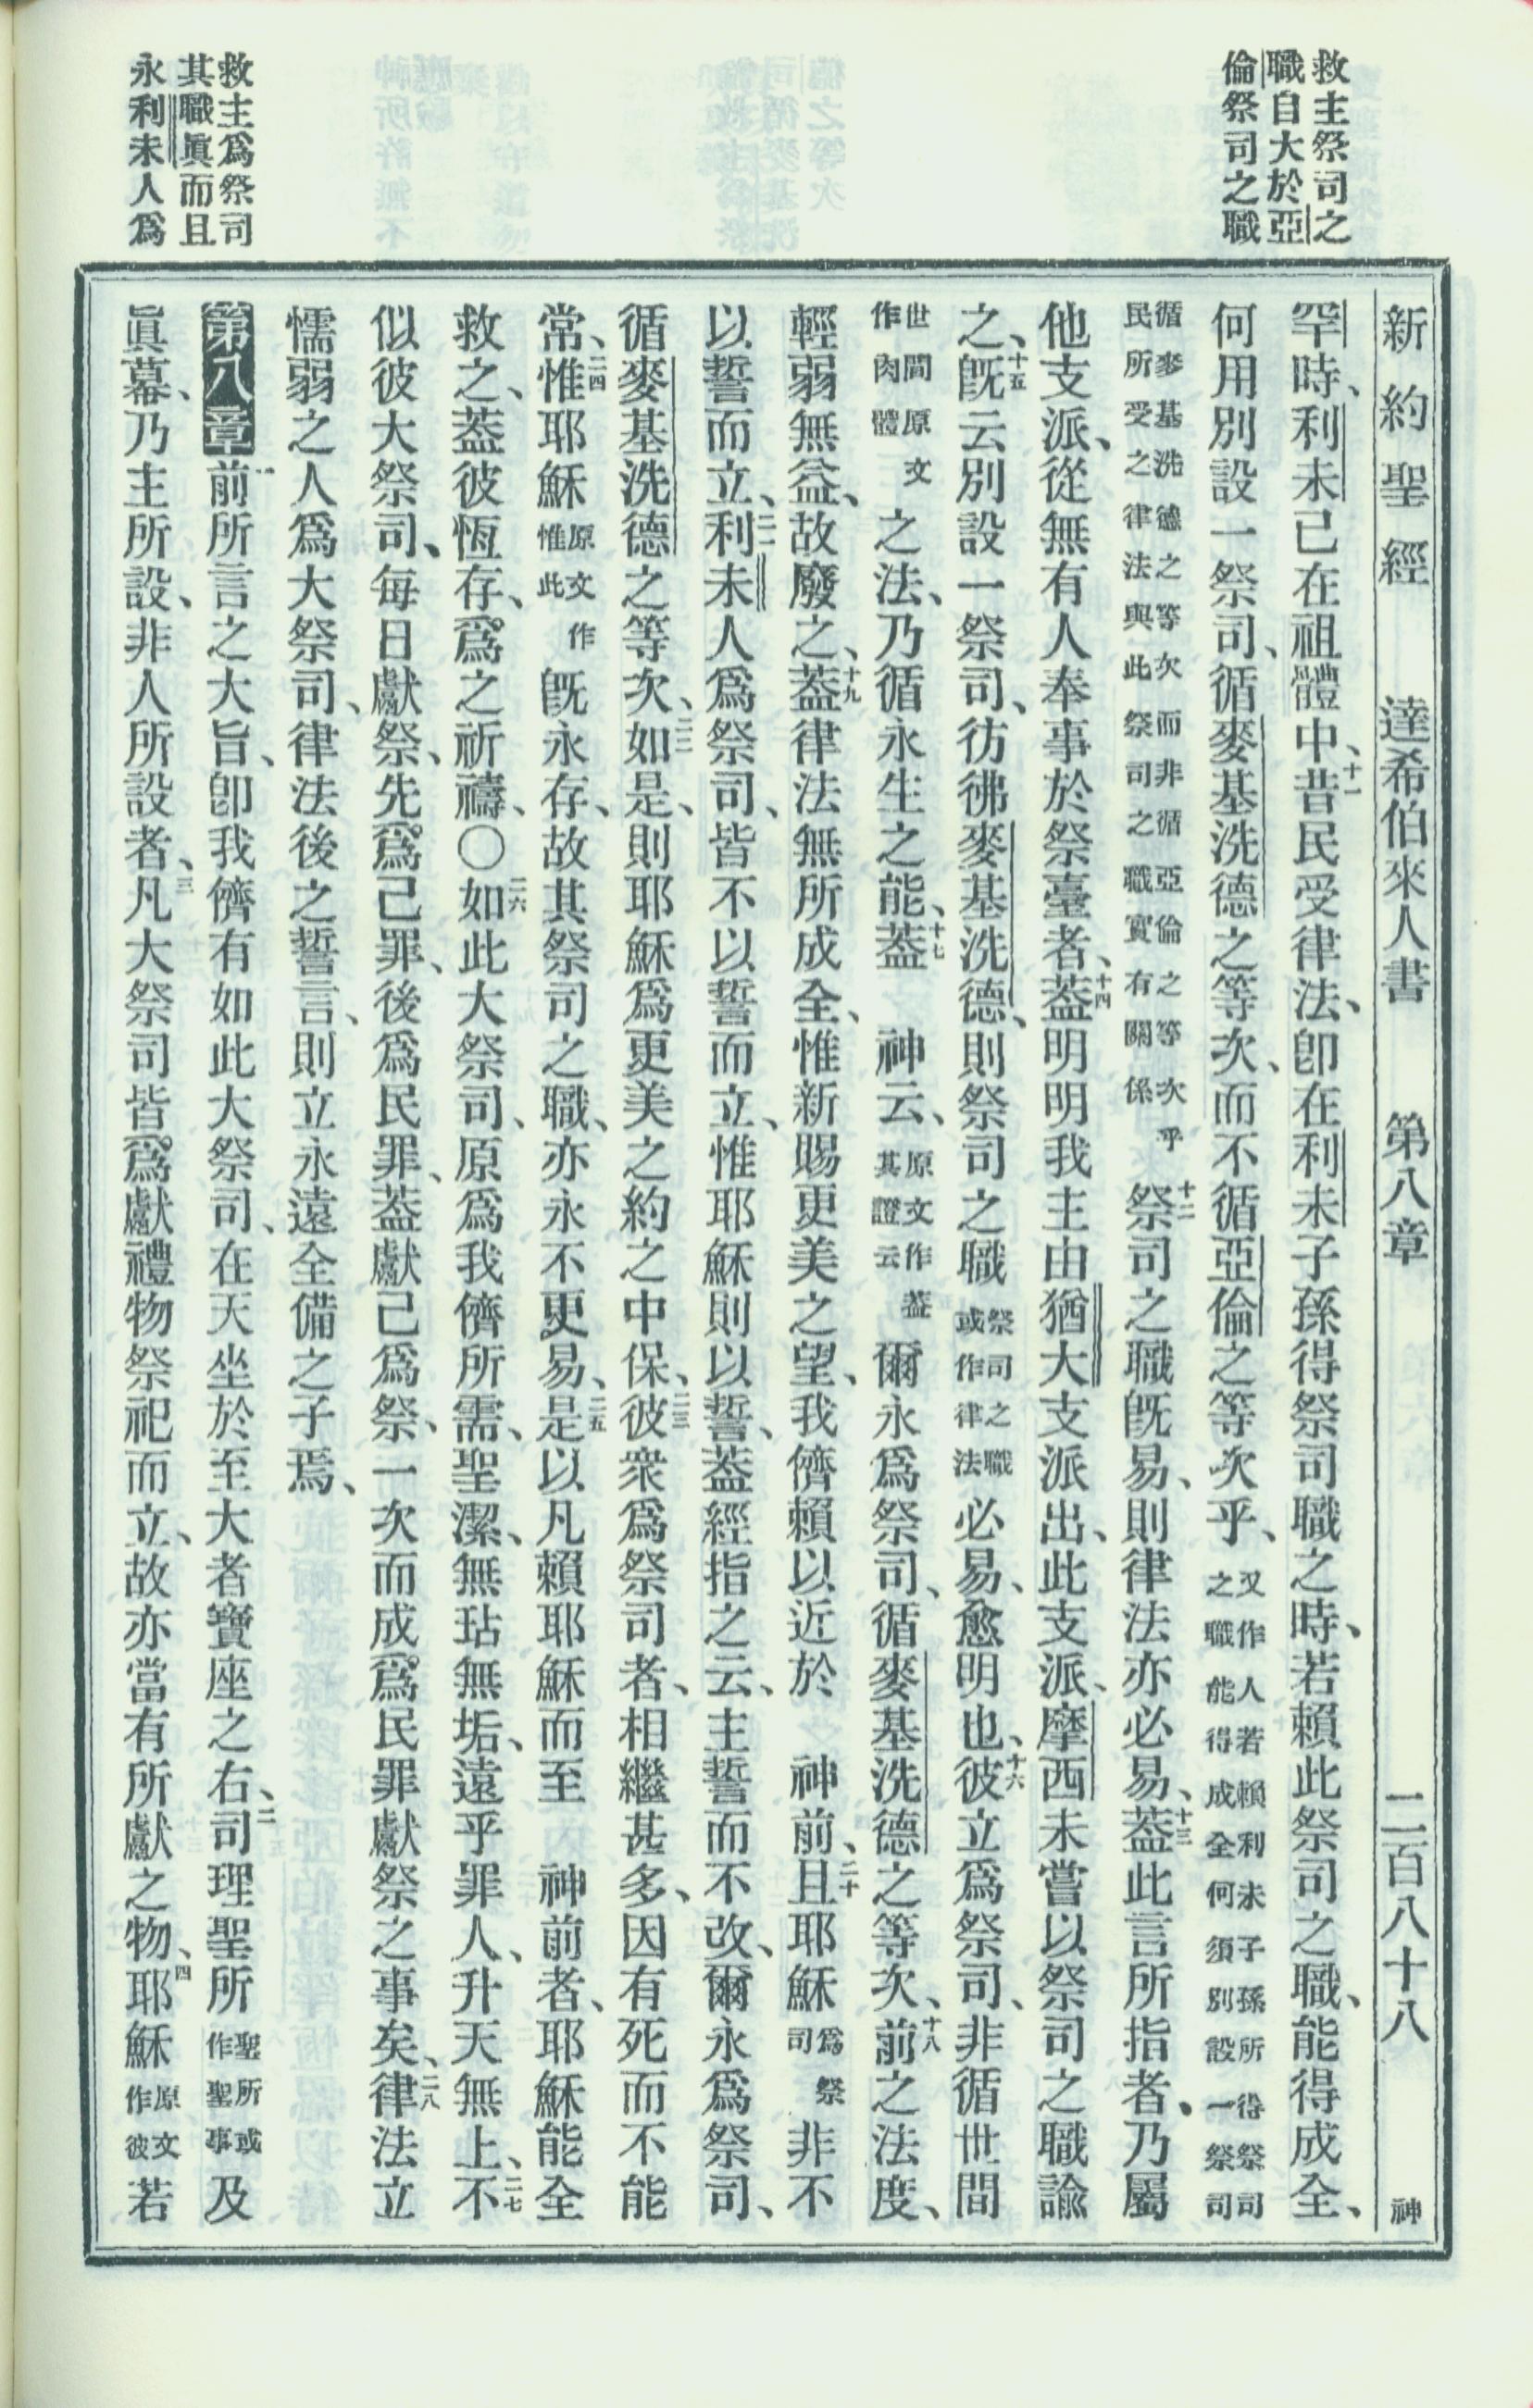 救主祭司之
職自大於亞
倫祭司之職
救主爲祭司
其職眞而且
永利未人爲
新約聖經 達希伯來人書 第八章 二百八十八 神
罕時、利未已在祖體中、十一昔民受律法、卽在利未子孫得祭司職之時、若賴此祭司之職、能得成全、
何用別設一祭司、循麥基洗德之等次、而不循亞倫之等次乎、又作人若賴利未子孫所得祭司之職能得成全何須別設一祭司
循麥基洗德之等次而非循亞倫之等次乎民所受之律法與此祭司之職實有關係十二祭司之職旣易、則律法亦必易、十三蓋此言所指者、乃屬
他支派、從無有人奉事於祭臺者、十四蓋明明我主由猶大支派出、此支派、摩西未嘗以祭司之職諭
之、十五旣云別設一祭司、彷彿麥基洗德、則祭司之職祭司之職或作律法必易、愈明也、十六彼立爲祭司、非循世間
世間原文作肉體之法、乃循永生之能、十七蓋 神云、原文作蓋其證云爾永爲祭司、循麥基洗德之等次、十八前之法度、
輕弱無益、故廢之、十九蓋律法無所成全、惟新賜更美之望、我儕賴以近於 神前、二十且耶穌爲祭司非不
以誓而立、二一利未人爲祭司、皆不以誓而立、惟耶穌則以誓、蓋經指之云、主誓而不改、爾永爲祭司、
循麥基洗德之等次、二二如是、則耶穌爲更美之約之中保、二三彼衆爲祭司者、相繼甚多、因有死而不能
常、二四惟耶穌原文作惟此旣永存、故其祭司之職、亦永不更易、二五是以凡賴耶穌而至 神前者、耶穌能全
救之、蓋彼恆存、爲之祈禱、〇二六如此大祭司、原爲我儕所需、聖潔、無玷無垢、遠乎罪人、升天無上、二七不
似彼大祭司、每日獻祭、先爲己罪、後爲民罪、蓋獻己爲祭、一次而成爲民罪獻祭之事矣、二八律法立
懦弱之人爲大祭司、律法後之誓言、則立永遠全備之子焉、
第八章一前所言之大旨、卽我儕有如此大祭司、在天坐於至大者寶座之右、二司理聖所聖所或作聖事及
眞幕、乃主所設、非人所設者、三凡大祭司皆爲獻禮物祭祀而立、故亦當有所獻之物、四耶穌原文作彼若